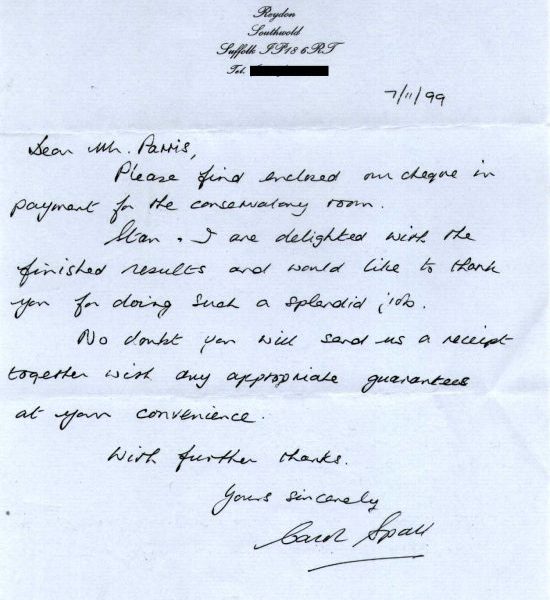 Reydon
Southwold
Suffolk IP18 6RT
Tel.
7/11/99
Dear Mr. Parris,
Please find enclosed our cheque in
payment for the conservatory room.
Stan + I are delighted with the
finished results and would like to thank
you for doing such a splendid job.
No doubt you will send us a receipt
together with any appropriate guarantees
at your convenience.
With further thanks.
Yours sincerely
Carol Spall